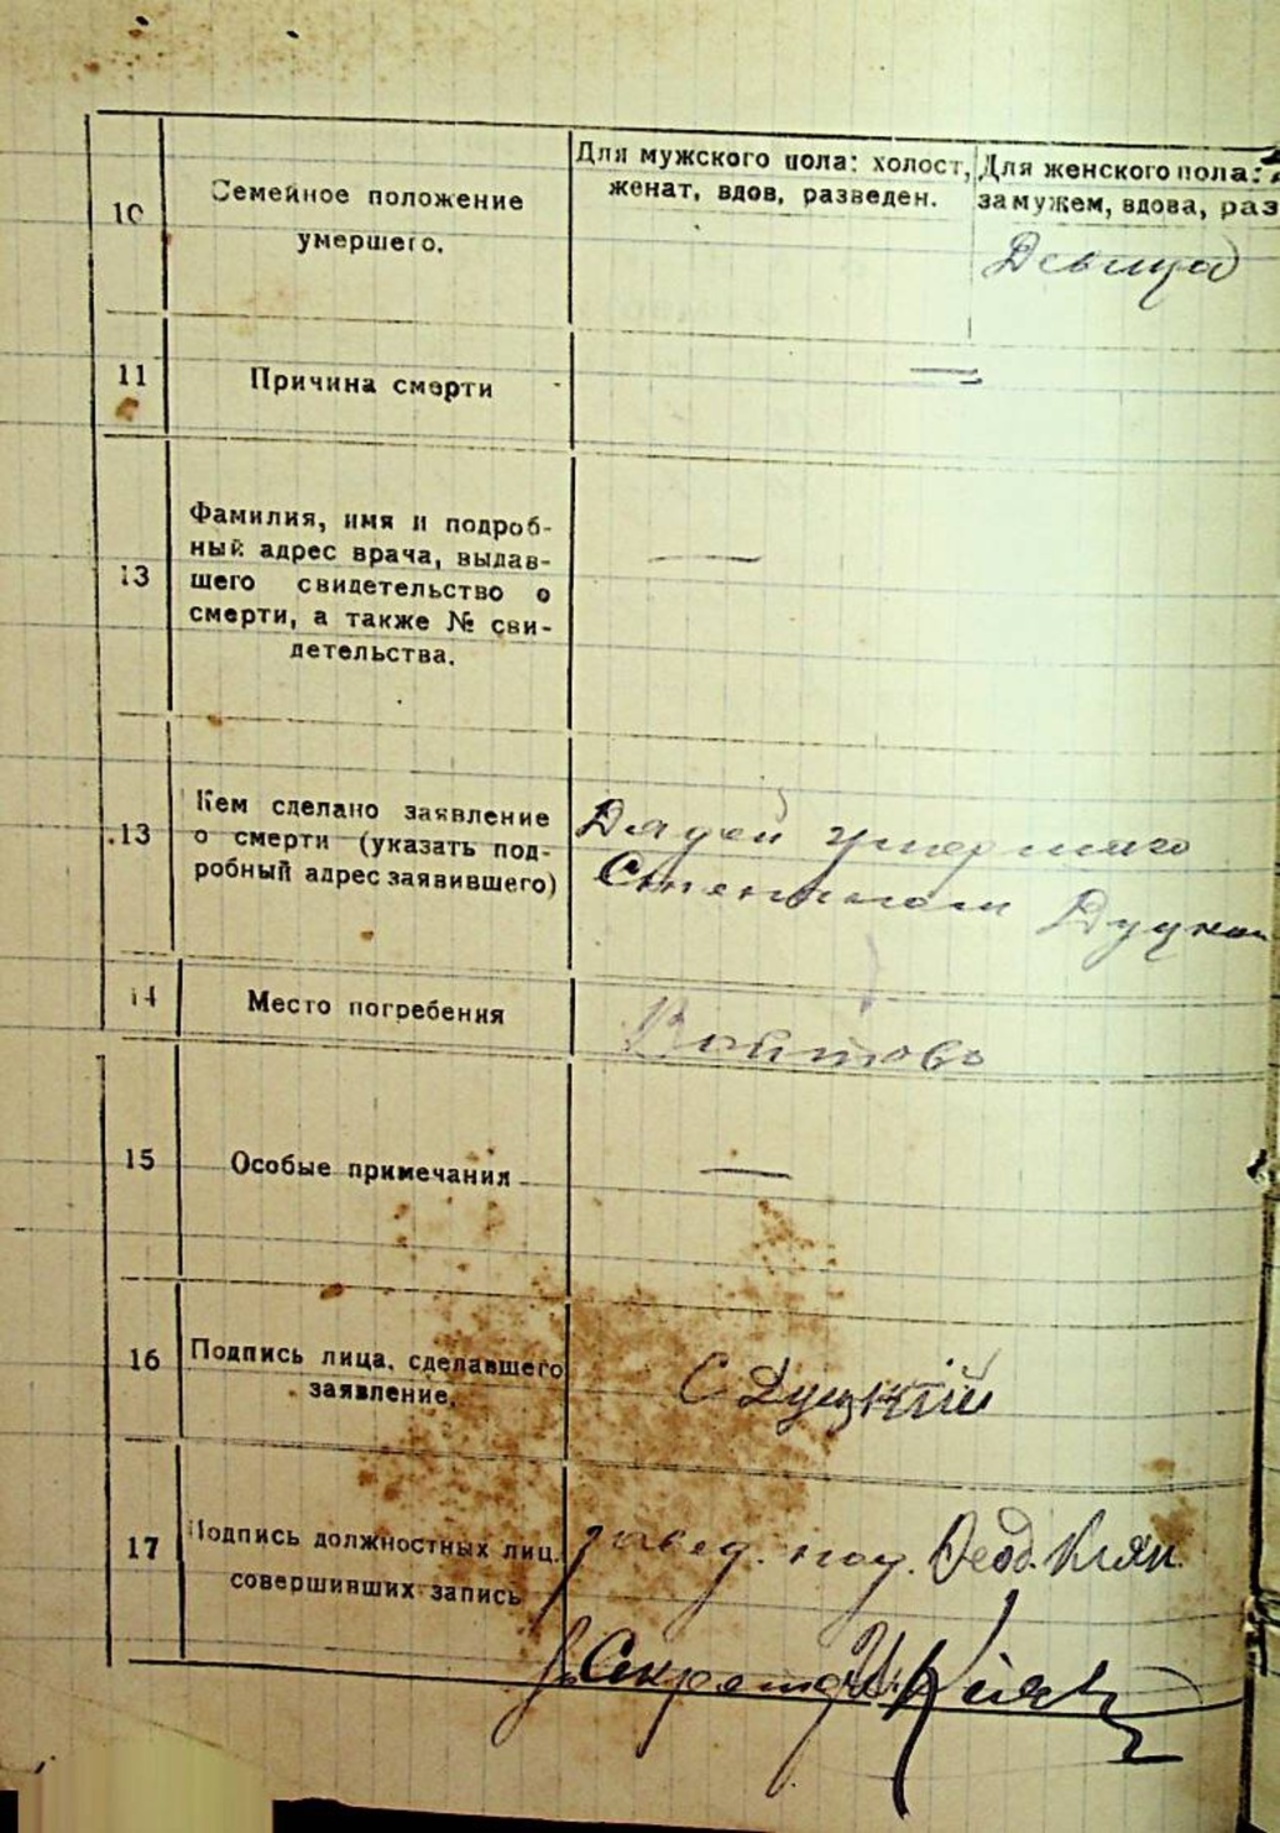 10
Семейное положение
умершего.
Для мужского пола: холост,
женат, вдов, разведен.
Для женского пола:
замужем, вдова, раз
Девица
11
Причина смерти
—
13
Фамилия, имя и подроб-
ный адрес врача, выдав-
шего свидетельство о
смерти, а также № сви-
детельства.
—
13
Кем сделано заявление
о смерти (указать под-
робный адрес заявившего)
Дядей умершаго
Степаном Дуцким
14
Место погребения
Войтово
15
Особые примечания
—
16
Подпись лица, сделавшего
заявление.
С Дуцкій
17
Подпись должностных лиц,
совершивших запись
завед. Феод.
Секретарь